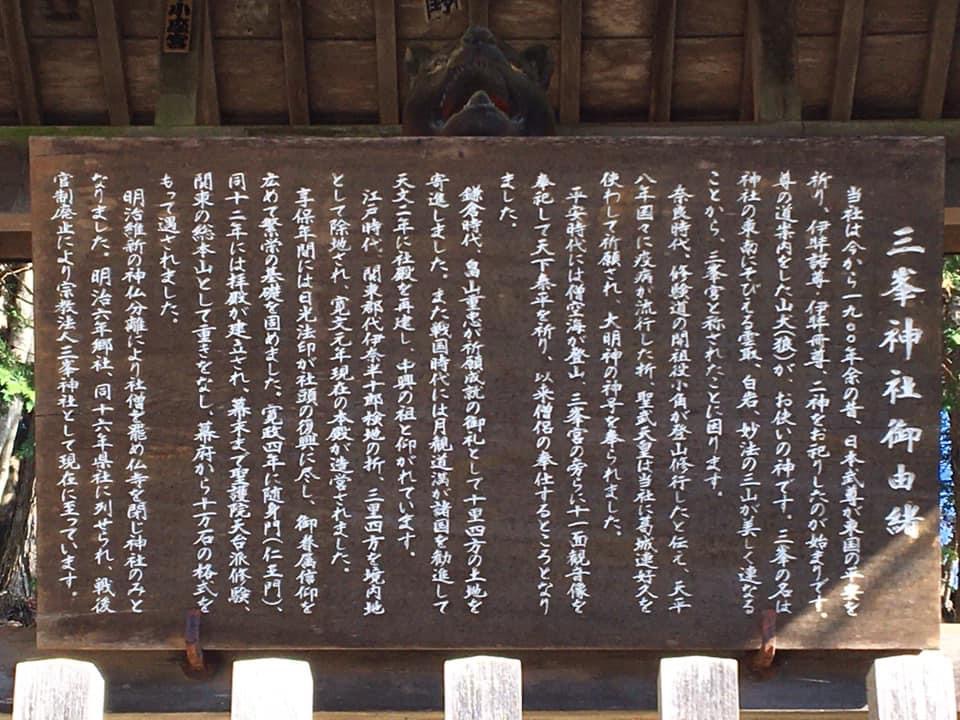 三峯神社御由緒
当社は今から一九〇〇年余の昔、日本武尊が東国の平安を
祈り、伊弉諾尊 伊弉册尊 二神をお祀りしたのが始まりです。
尊の道案内をした山犬(狼)が、お使いの神です。三峯の名は
神社の東南にそびえる雲取、白岩、妙法の三山が美しく連なる
ことから、三峯宮と称されたことに因ります。
奈良時代、修験道の開祖役小角が登山修行したと伝え、天平
八年国々に疫病が流行した折、聖武天皇は当社に葛城連好久を
使わして祈願され、大明神の神号を奉られました。
平安時代には僧空海が登山、三峯宮の旁らに十一面観音像を
奉祀して天下泰平を祈り、以来僧侶の奉仕するところとなり
ました。
鎌倉時代、畠山重忠が祈願成就の御礼として十里四方の土地を
寄進しました。また戦国時代には月観道満が諸国を勧進して
天文二年に社殿を再建し、中興の祖と仰がれています。
江戸時代、関東郡代伊奈半十郎検地の折、三里四方を境内地
として除地され、寛文元年現在の本殿が造営されました。
享保年間には日光法印が社頭の復興に尽し、御眷属信仰を
広めて繁栄の基礎を固めました。寛政四年に随身門(仁王門)、
同十二年には拝殿が建立され、幕末まで聖護院天台派修験、
関東の総本山として重きをなし、幕府から十万石の格式を
もって遇されました。
明治維新の神仏分離により社僧を罷め仏寺を閉じ神社のみと
なりました。明治六年郷社、同十六年県社に列せられ、戦後
官制廃止により宗教法人三峯神社として現在に至っています。